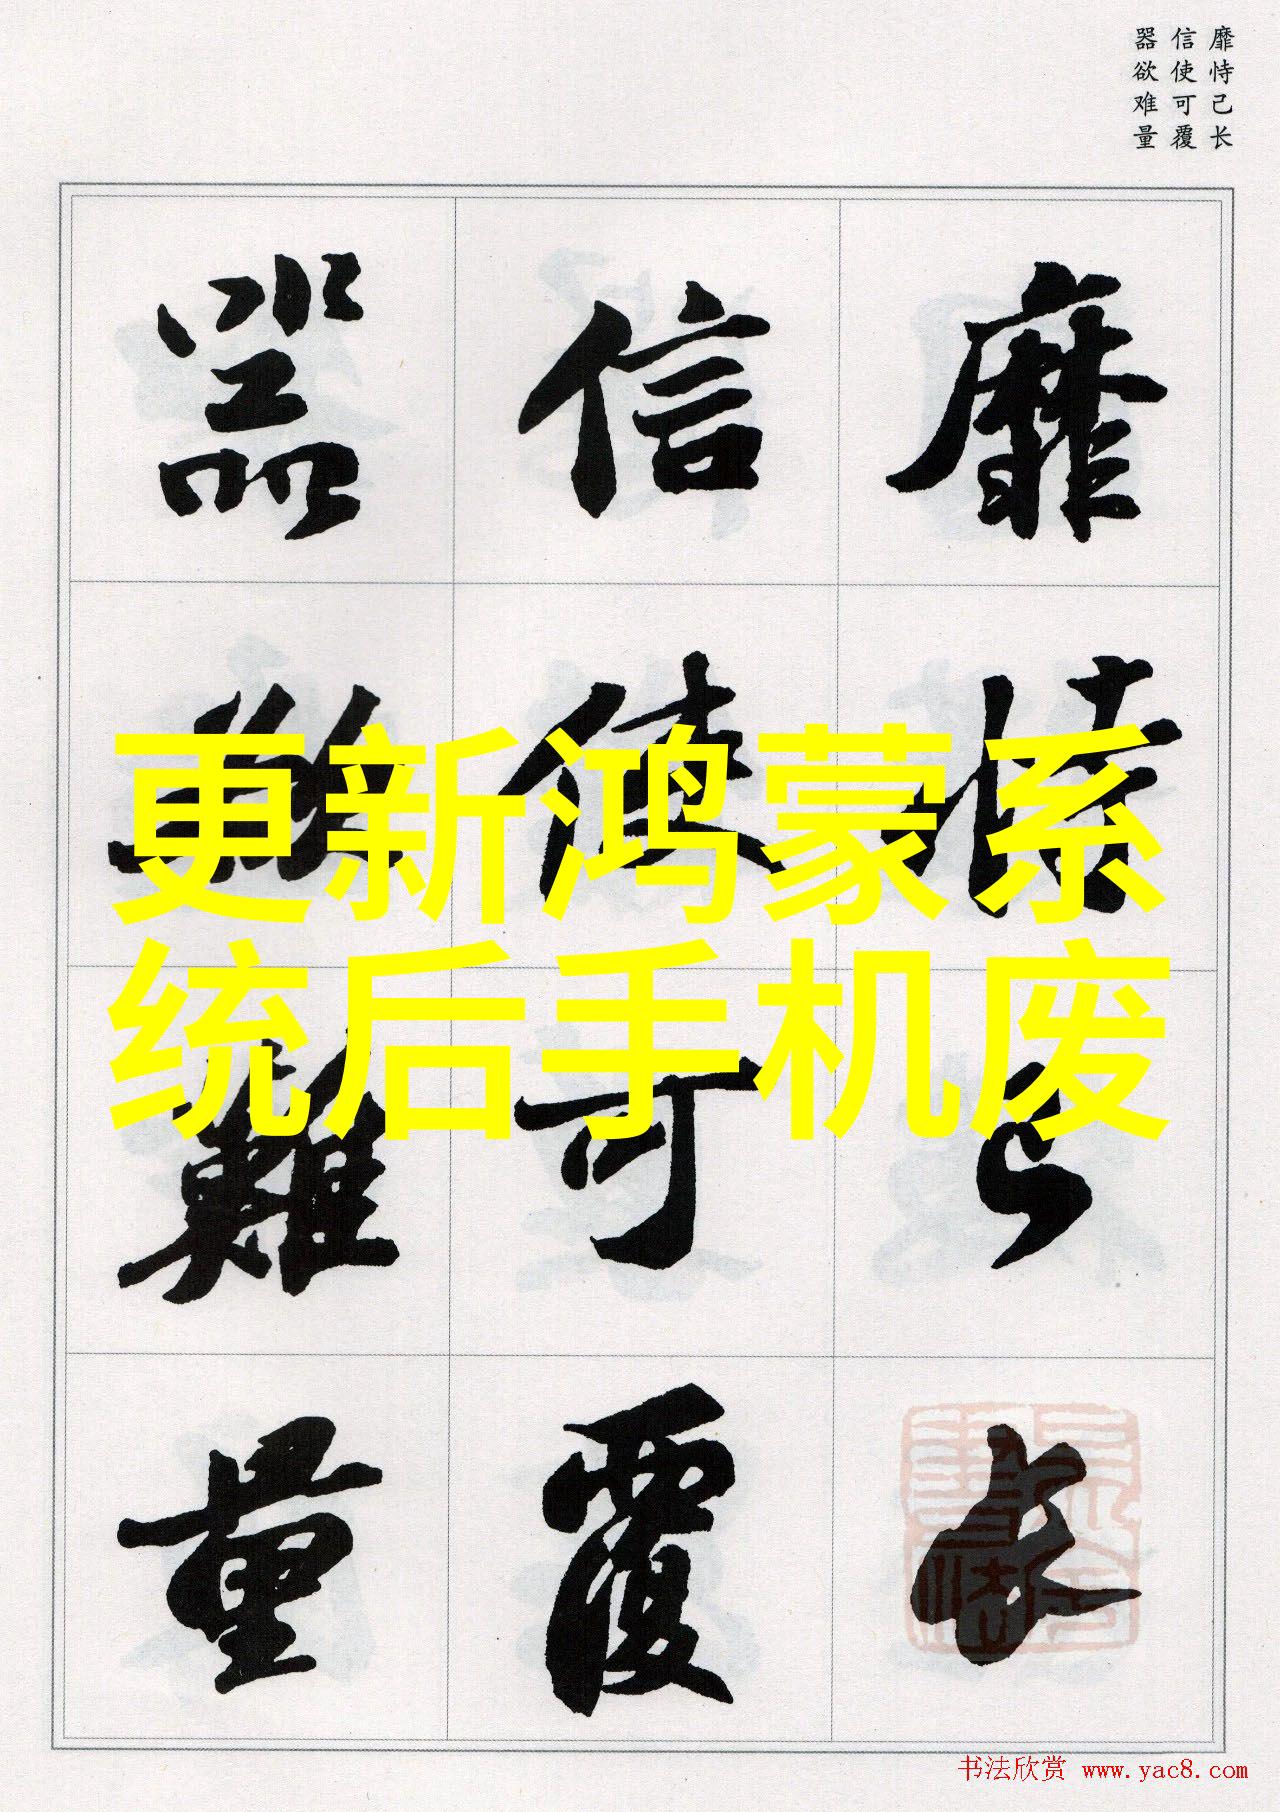 靡恃己长
信使可覆
器欲难量
靡恃己长
信使可覆
器欲難量
更新鸿蒙系
统后手机废
书法欣赏 www.yac8.com